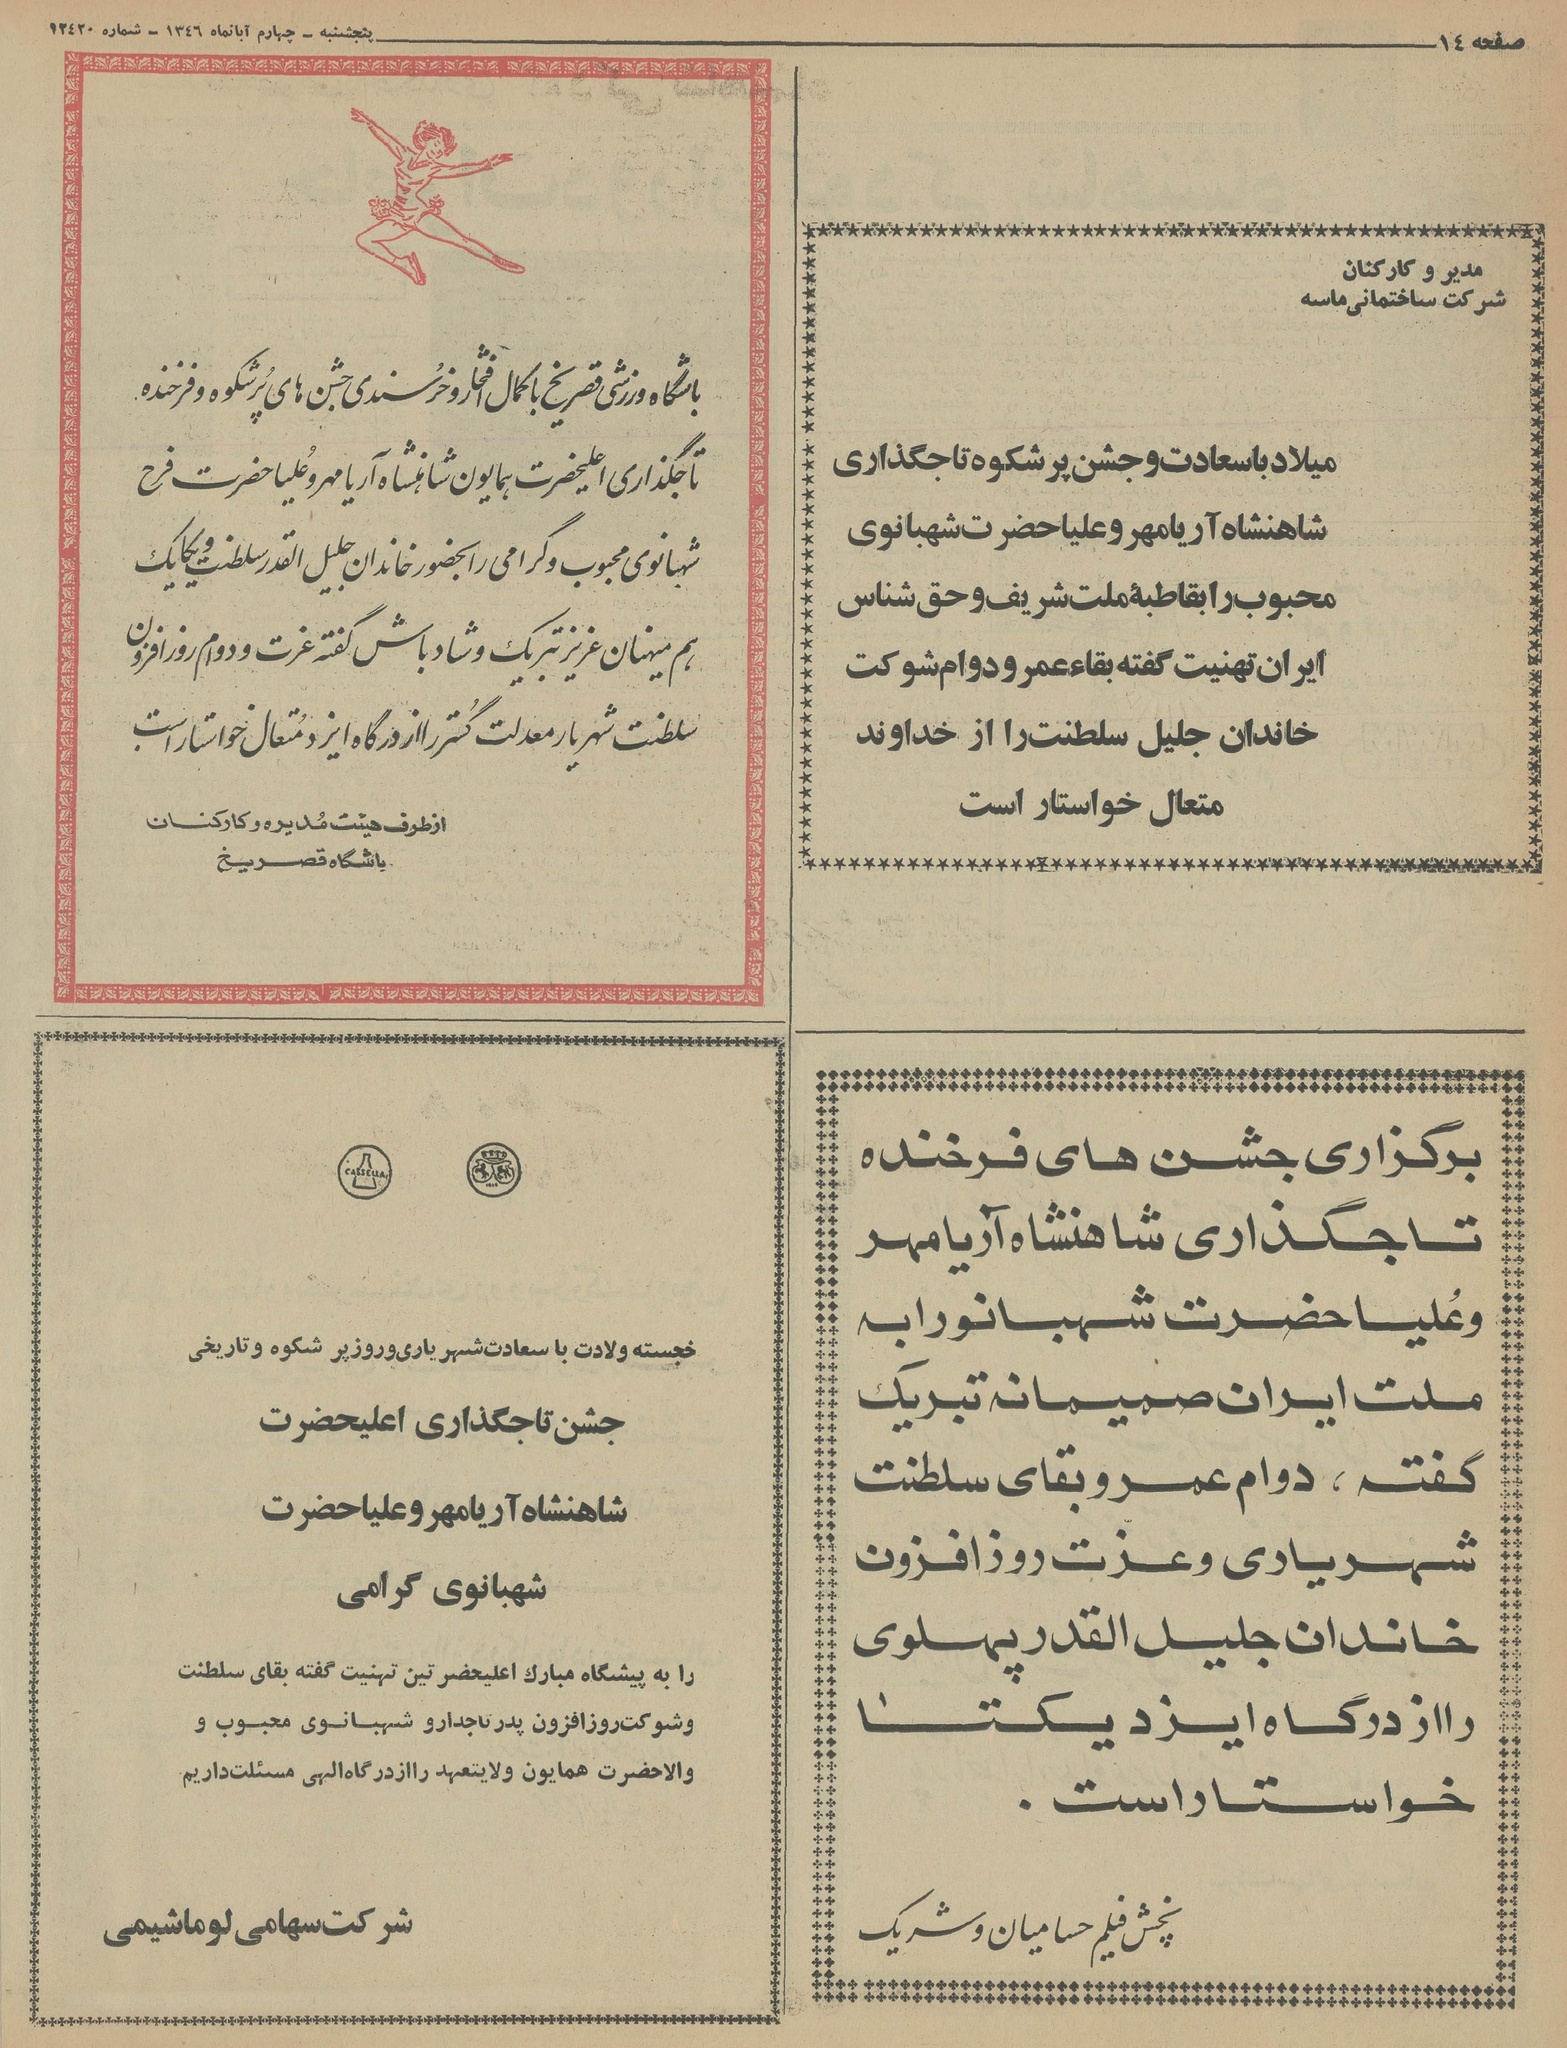 صفحه ١٤
پنجشنبه – چهارم آبانماه ١٣٤٦ – شماره ٩٢٤٢٠
مدیر و کارکنان
شرکت ساختمانی ماسه
میلاد باسعادت و جشن پر شکوه تاجگذاری
شاهنشاه آریامهر و علیاحضرت شهبانوی
محبوب را بقاطبهٔ ملت شریف و حق شناس
ایران تهنیت گفته بقاء عمر و دوام شوکت
خاندان جلیل سلطنت را از خداوند
متعال خواستار است
باشگاه ورزشی قصر یخ با کمال افتخار و خُرسندی جشن های پُر شکوه و فرخنده
تاجگذاری اعلیحضرت همایون شاهنشاه آریامهر و عُلیاحضرت فرح
شهبانوی محبوب و گرامی را بحضور خاندان جلیل القدر سلطنت و یکایک
هم میهنان عزیز تبریک و شاد باش گفته عزت و دوام روز افزون
سلطنت شهریار معدلت گُستر را از درگاه ایزد مُتعال خواستار است
از طرف هیئت مُدیره و کارکنان
باشگاه قصر یخ
برگزاری جشن های فرخنده
تاجگذاری شاهنشاه آریامهر
و عُلیاحضرت شهبانو را به
ملت ایران صمیمانه تبریک
گفته ، دوام عمر و بقای سلطنت
شهریاری و عزت روز افزون
خاندان جلیل القدر پهلوی
را از درگاه ایزد یکتا
خواستار است .
پخش فیلم حسامیان و شریک
CASSELLA
خجسته ولادت با سعادت شهریاری و روز پر شکوه و تاریخی
جشن تاجگذاری اعلیحضرت
شاهنشاه آریامهر و علیاحضرت
شهبانوی گرامی
را به پیشگاه مبارك اعلیحضرتین تهنیت گفته بقای سلطنت
و شوکت روز افزون پدر تاجدار و شهبانوی محبوب و
والاحضرت همایون ولایتعهد را از درگاه الهی مسئلت داریم
شرکت سهامی لوماشیمی